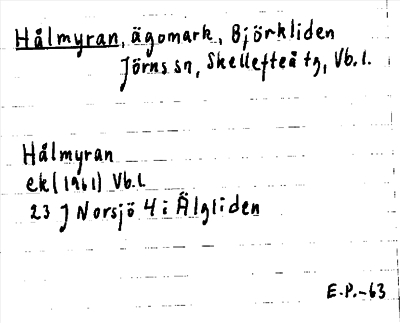 Hålmyran, ägomark, Björkliden
Jörns sn, Skellefteå tg, Vb.l.
Hålmyran
ek (1961) Vb.l
23 J Norsjö 4 i Älgliden
E.P.-63